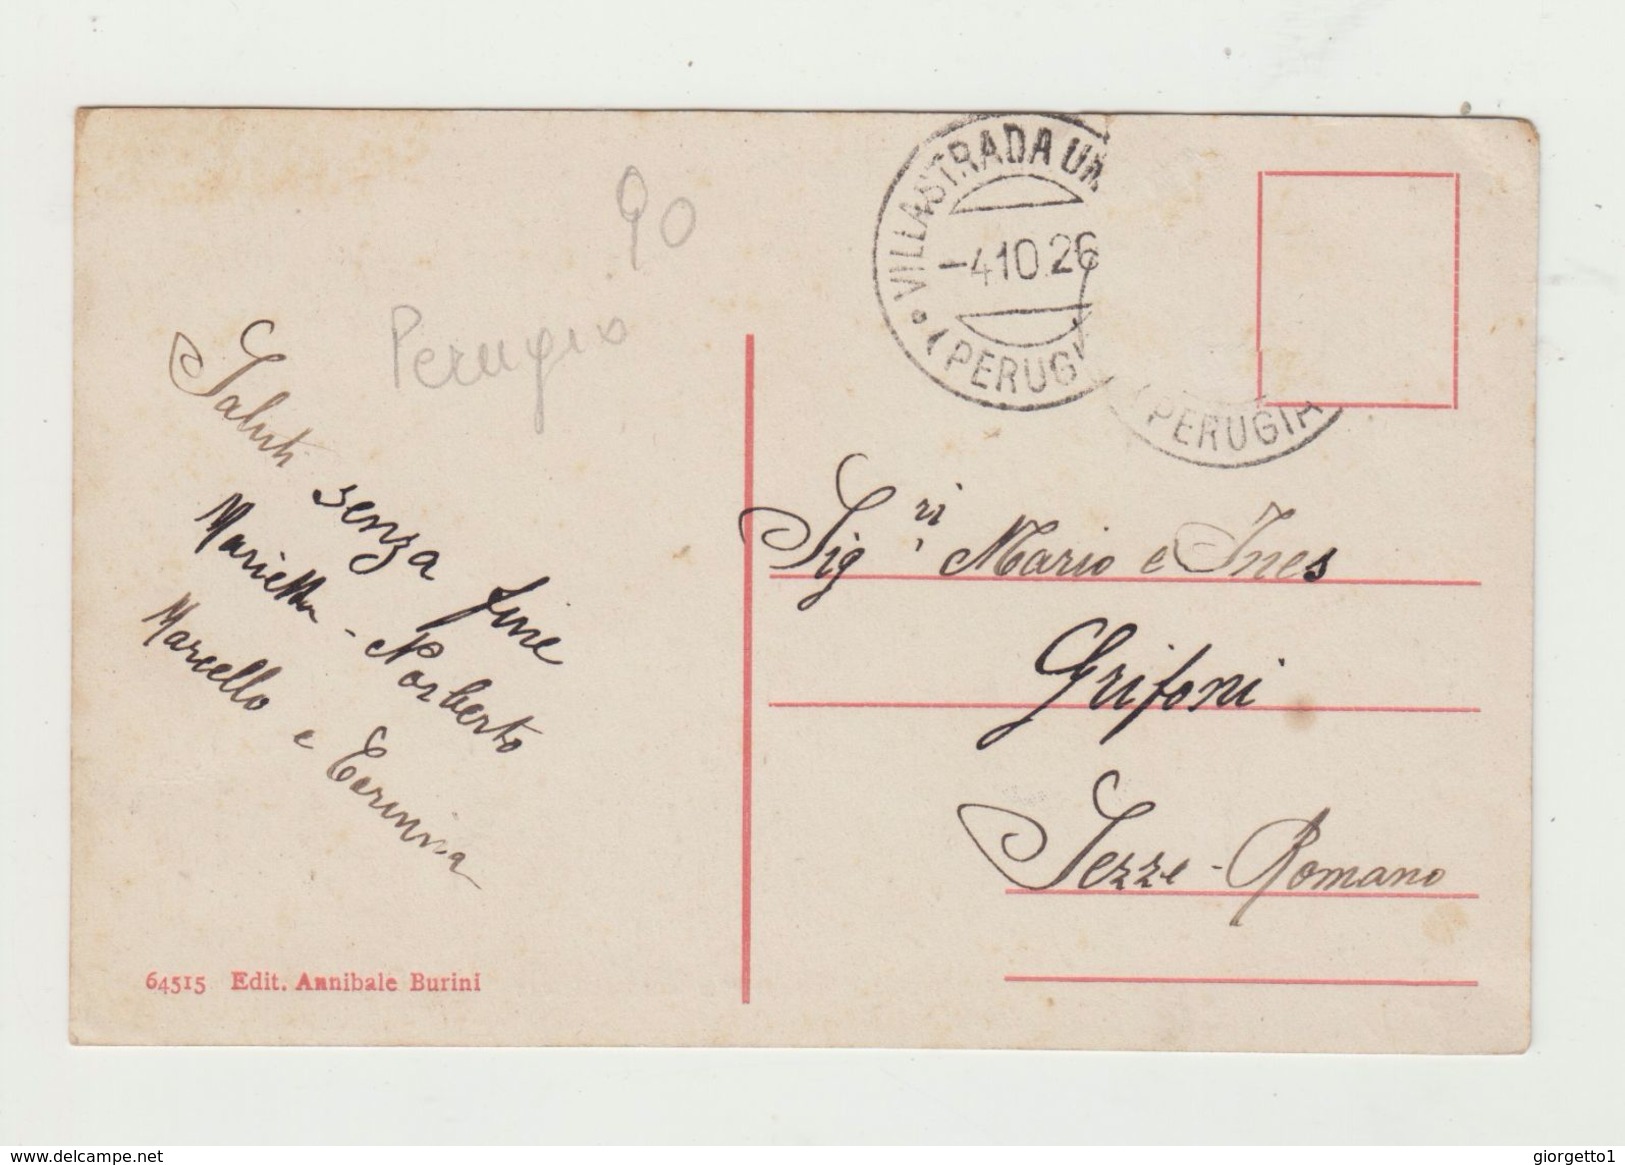 90
Perugia
VILLASTRADA UM
-4.10.26
(PERUGI
(PERUGIA
Saluti senza fine
Marietta - Norberto
Marcello e Erminia
Sig.ri Mario e Ines
Grifoni
Sezze-Romano
64515 Edit. Annibale Burini
www.delcampe.net
giorgetto1